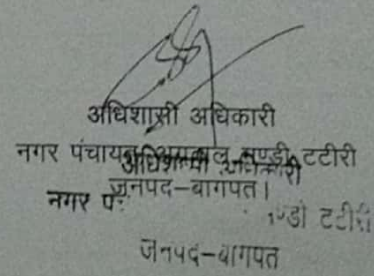 अधिशासी अधिकारी
नगर पंचायत अग्रवाल मण्डी टटीरी
अधिशासी अधिकारी
जनपद-बागपत।
नगर पं
ण्डी टटीरी
जनपद-बागपत